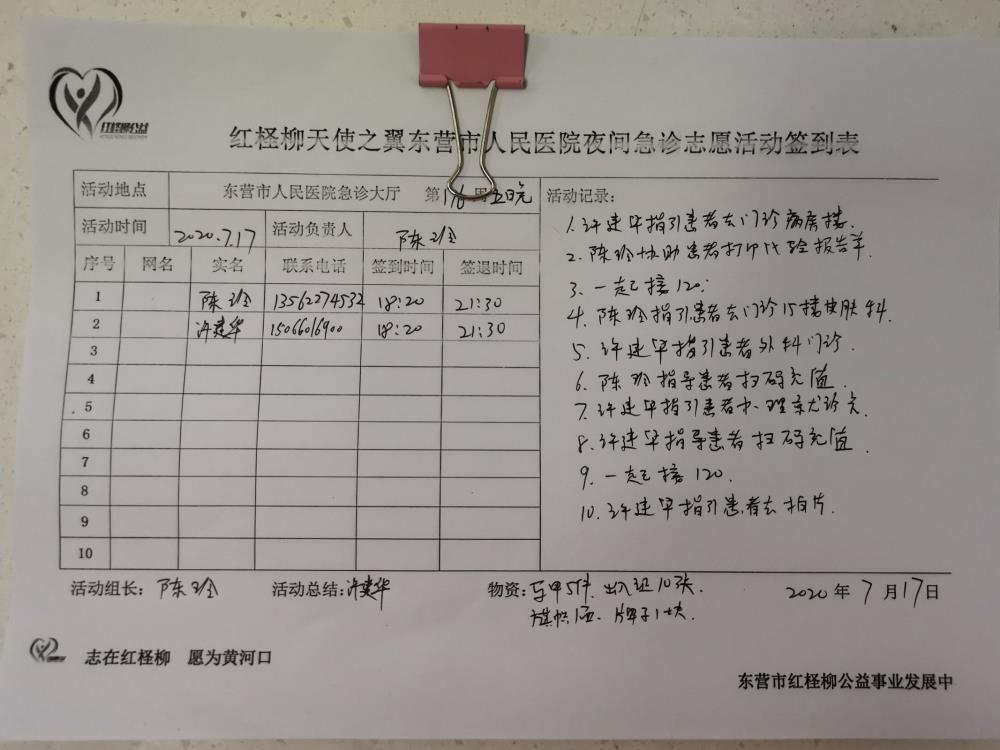 红柽柳公益
红柽柳天使之翼东营市人民医院夜间急诊志愿活动签到表
活动地点 东营市人民医院急诊大厅 第176周五日元
活动时间 2020.7.17 活动负责人 陈玲
序号 网名 实名 联系电话 签到时间 签退时间
1 陈玲 13562274532 18:20 21:30
2 许建华 15066016900 18:20 21:30
3
4
5
6
7
8
9
10
活动记录:
1.许建华指引患者去门诊病房楼.
2.陈玲协助患者打印化验报告单.
3.一起接120.
4.陈玲指引患者去门诊15楼皮肤科.
5.许建华指引患者外科门诊.
6.陈玲指导患者扫码充值.
7.许建华指引患者办理
8.许建华指导患者扫码充值
9.一起接120.
10.许建华指引患者去拍片.
活动组长: 陈玲 活动总结:许建华 物资:马甲5件.出入证10张. 2020年7月17日
旗帜1面.牌子1块.
志在红柽柳 愿为黄河口
东营市红柽柳公益事业发展中